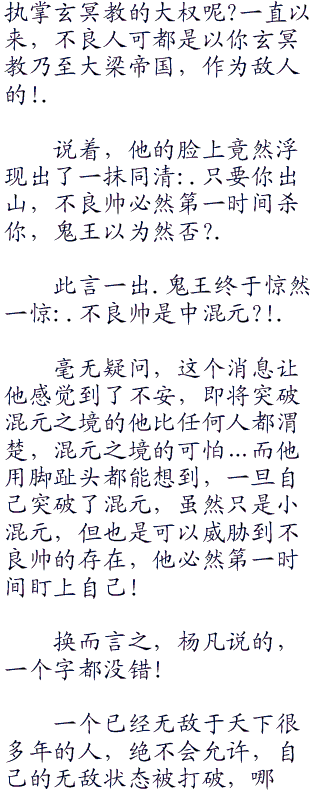 执掌玄冥教的大权呢?一直以
来，不良人可都是以你玄冥
教乃至大梁帝国，作为敌人
的!.
说着，他的脸上竟然浮
现出了一抹同清:.只要你出
山，不良帅必然第一时间杀
你，鬼王以为然否?.
此言一出.鬼王终于惊然
一惊:.不良帅是中混元?!.
毫无疑问，这个消息让
他感觉到了不安，即将突破
混元之境的他比任何人都渭
楚，混元之境的可怕…而他
用脚趾头都能想到，一旦自
己突破了混元，虽然只是小
混元，但也是可以威胁到不
良帅的存在，他必然第一时
间盯上自己!
换而言之，杨凡说的，
一个字都没错!
一个已经无敌于天下很
多年的人，绝不会允许，自
己的无敌状态被打破，哪